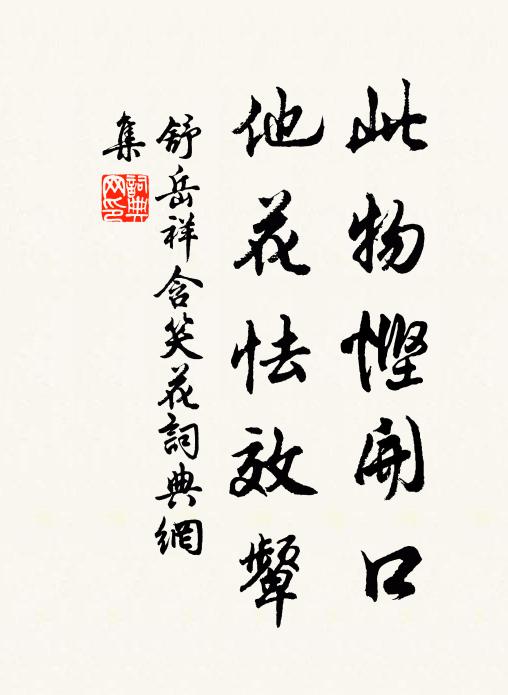 此物慳開口
他花怯效顰
舒岳祥含笑花詞典網
集
詞典
网印